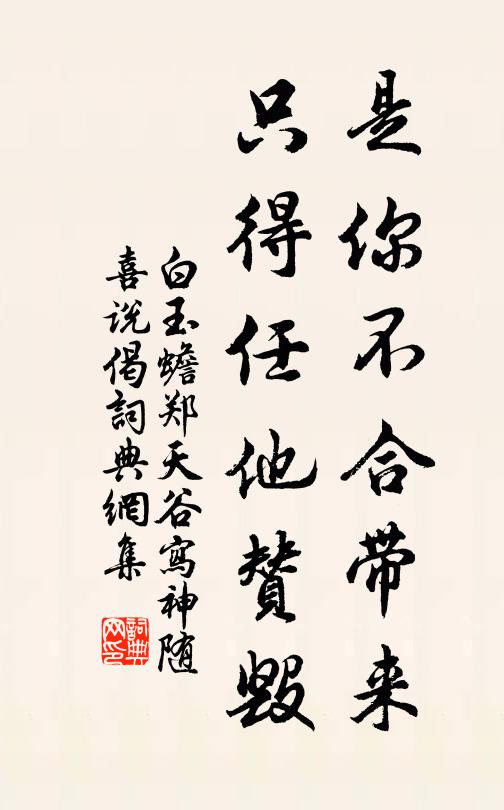 是你不合带来
只得任他赞毁
白玉蟾郑天谷写神随
喜说偈词典網集
詞典网印